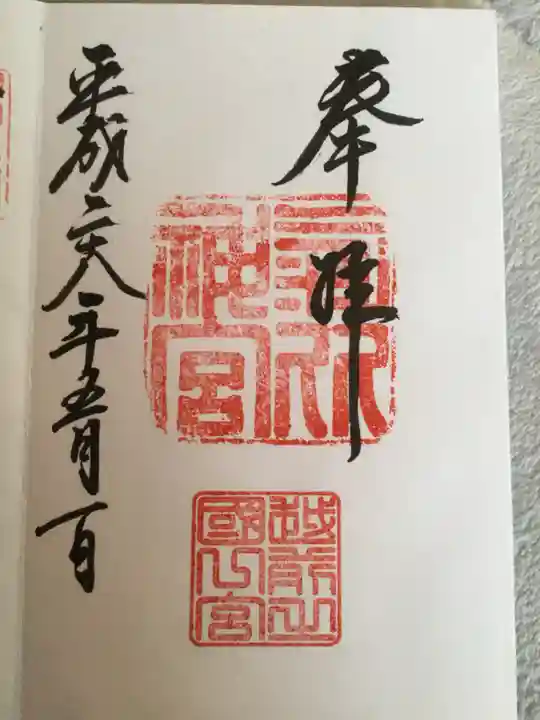 奉拝
氣比
神宮
越前之
國一宮
平成二十八年五月一日